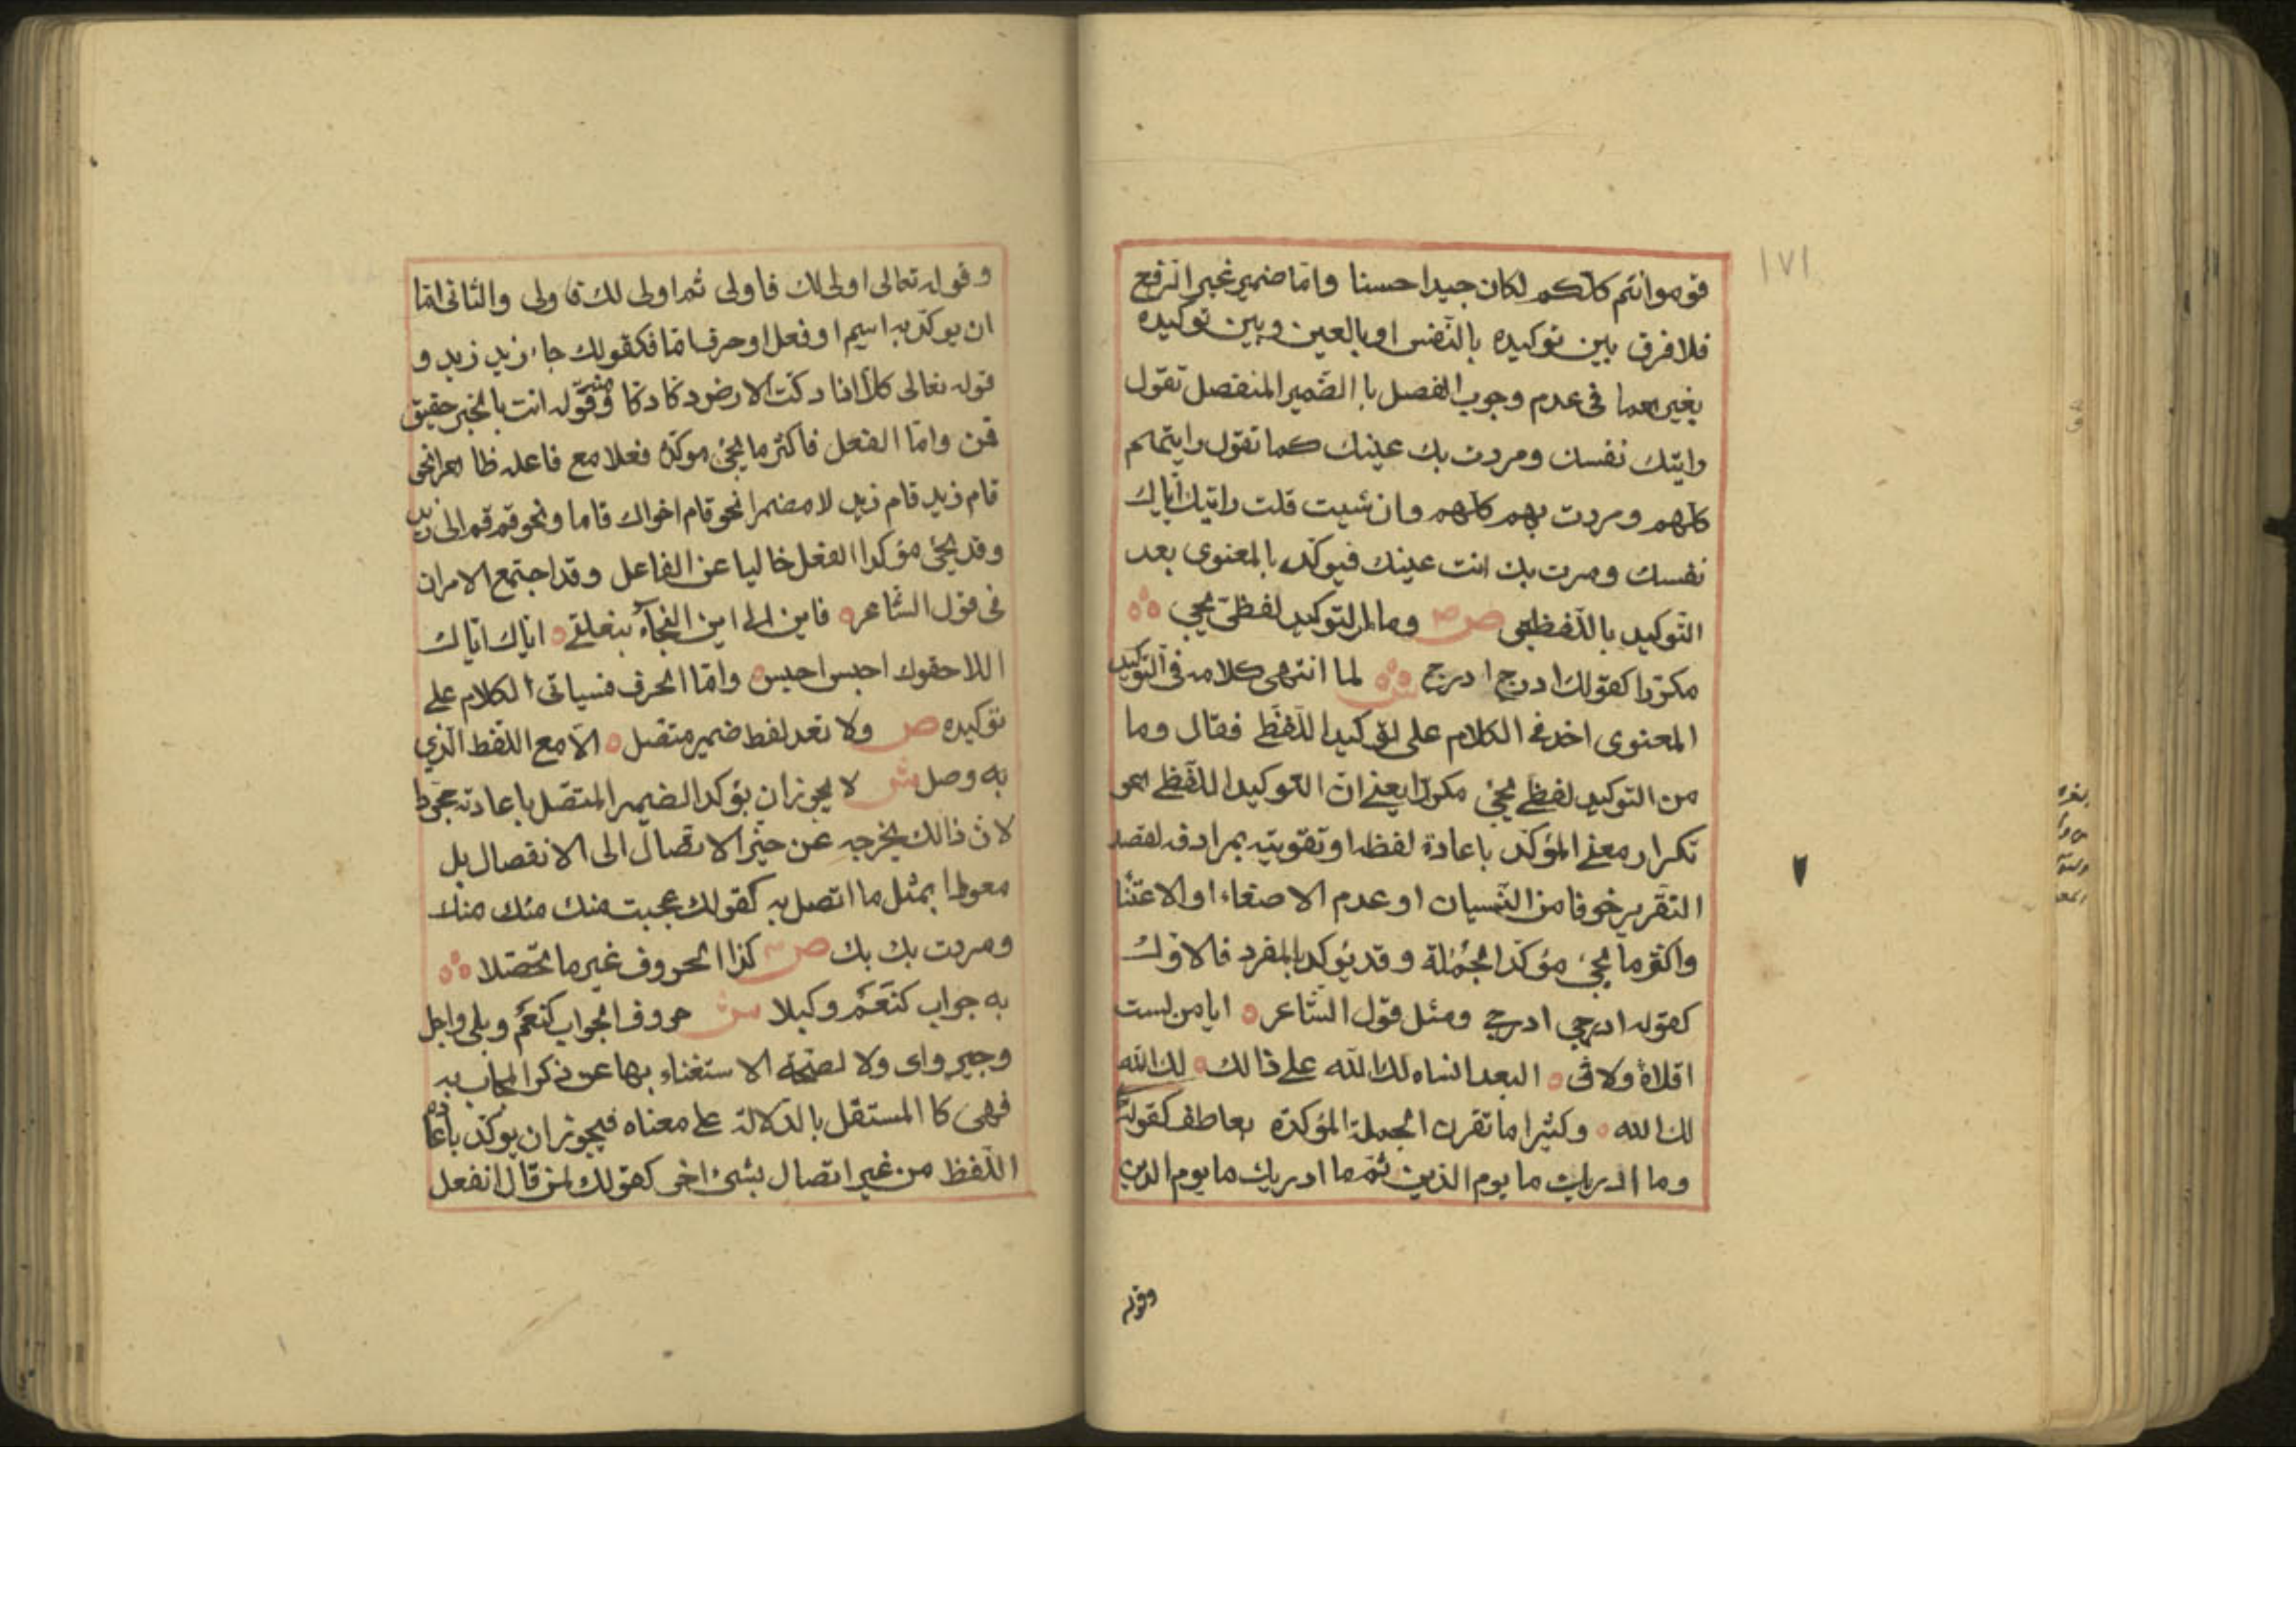 ١٧١
قوموا انتم كلكم لكان جيدا حسنا واما ضمير غير الرفع
فلا فرق بين توكيده بالنفس او بالعين وبين توكيده
بغيرهما فى عدم وجوب الفصل باالضمير المنفصل تقول
رايتك نفسك ومررت بك عينك كما تقول رايتهم
كلهم ومررت بهم كلهم وان شيت قلت رايتك اياك
نفسك ومرت بك انت عينك فيوكد بالمعنوى بعد
التوكيد باللفظى ص وما من التوكيد لفظى يجى
مكررا كقولك ادرج ادرج ش لما انتهى كلامه فى التوكيد
المعنوى اخذ فى الكلام على التوكيد اللفظى فقال وما
من التوكيد لفظى يجئ مكررا يعنى ان التوكيد اللفظى هو
تكرار معنى المؤكد باعادة لفظه او تقويته بمرادفه لقصد
التقرير خوفا من النسيان او عدم الاصغاء او الاعتنا
واكثر ما يجئ مؤكد الجملة وقد يؤكد بالمفرد فالاول
كقوله ادرجى ادرجى ومثل قول الشاعر ايا من لست
اقلاه ولا فى البعد انساه لك الله على ذالك لك الله
لك الله وكثيرا ما تقرن الجملة المؤكدة بعاطف كقوله
وما ادريك ما يوم الدين ثم ما ادريك ما يوم الدين
وقوله
وقوله تعالى اولى لك فاولى ثم اولى لك فاولى والثانى اما
ان يوكد به اسيم او فعل او حرف اما فكقولك جاء زيد زيد و
قوله تعالى كلا اذا دكت الارض دكا دكا وقوله انت بالخير حقيق
قمن واما الفعل فاكثر ما يجئ موكده فعلا مع فاعله ظاهرا نحو
قام زيد قام زيد لا مضمرا نحو قام اخواك قاما ونحو قم قم الى زيد
وقد يجئ مؤكد الفعل خاليا عن الفاعل وقد اجتمع الامران
فى قول الشاعر فاين الى اين النجاء ببغلتى اتاك اتاك
اللاحقوك احبس احبس واما الحرف فسياتى الكلام على
توكيده ص ولا تعد لفظ ضمير متصل الا مع اللفظ الذي
به وصل ش لا يجوز ان يؤكد الضمير المتصل باعادته مجردا
لان ذالك يخرجه عن حيز الاتصال الى الانفصال بل
معوطا بمثل ما اتصل به كقولك عجبت منك منك منك
ومررت بك بك ص كذا الحروف غير ما تحصلا
به جواب كنعم وكبلا ش حروف الجواب كنعم وبلى واجل
وجير واى ولا لصحة الاستغناء بها عن ذكر المجاب به
فهى كا المستقل بالدلالة على معناه فيجوز ان يوكد باعادة
اللفظ من غير اتصال بشئ اخر كقولك لمن قال اتفعل